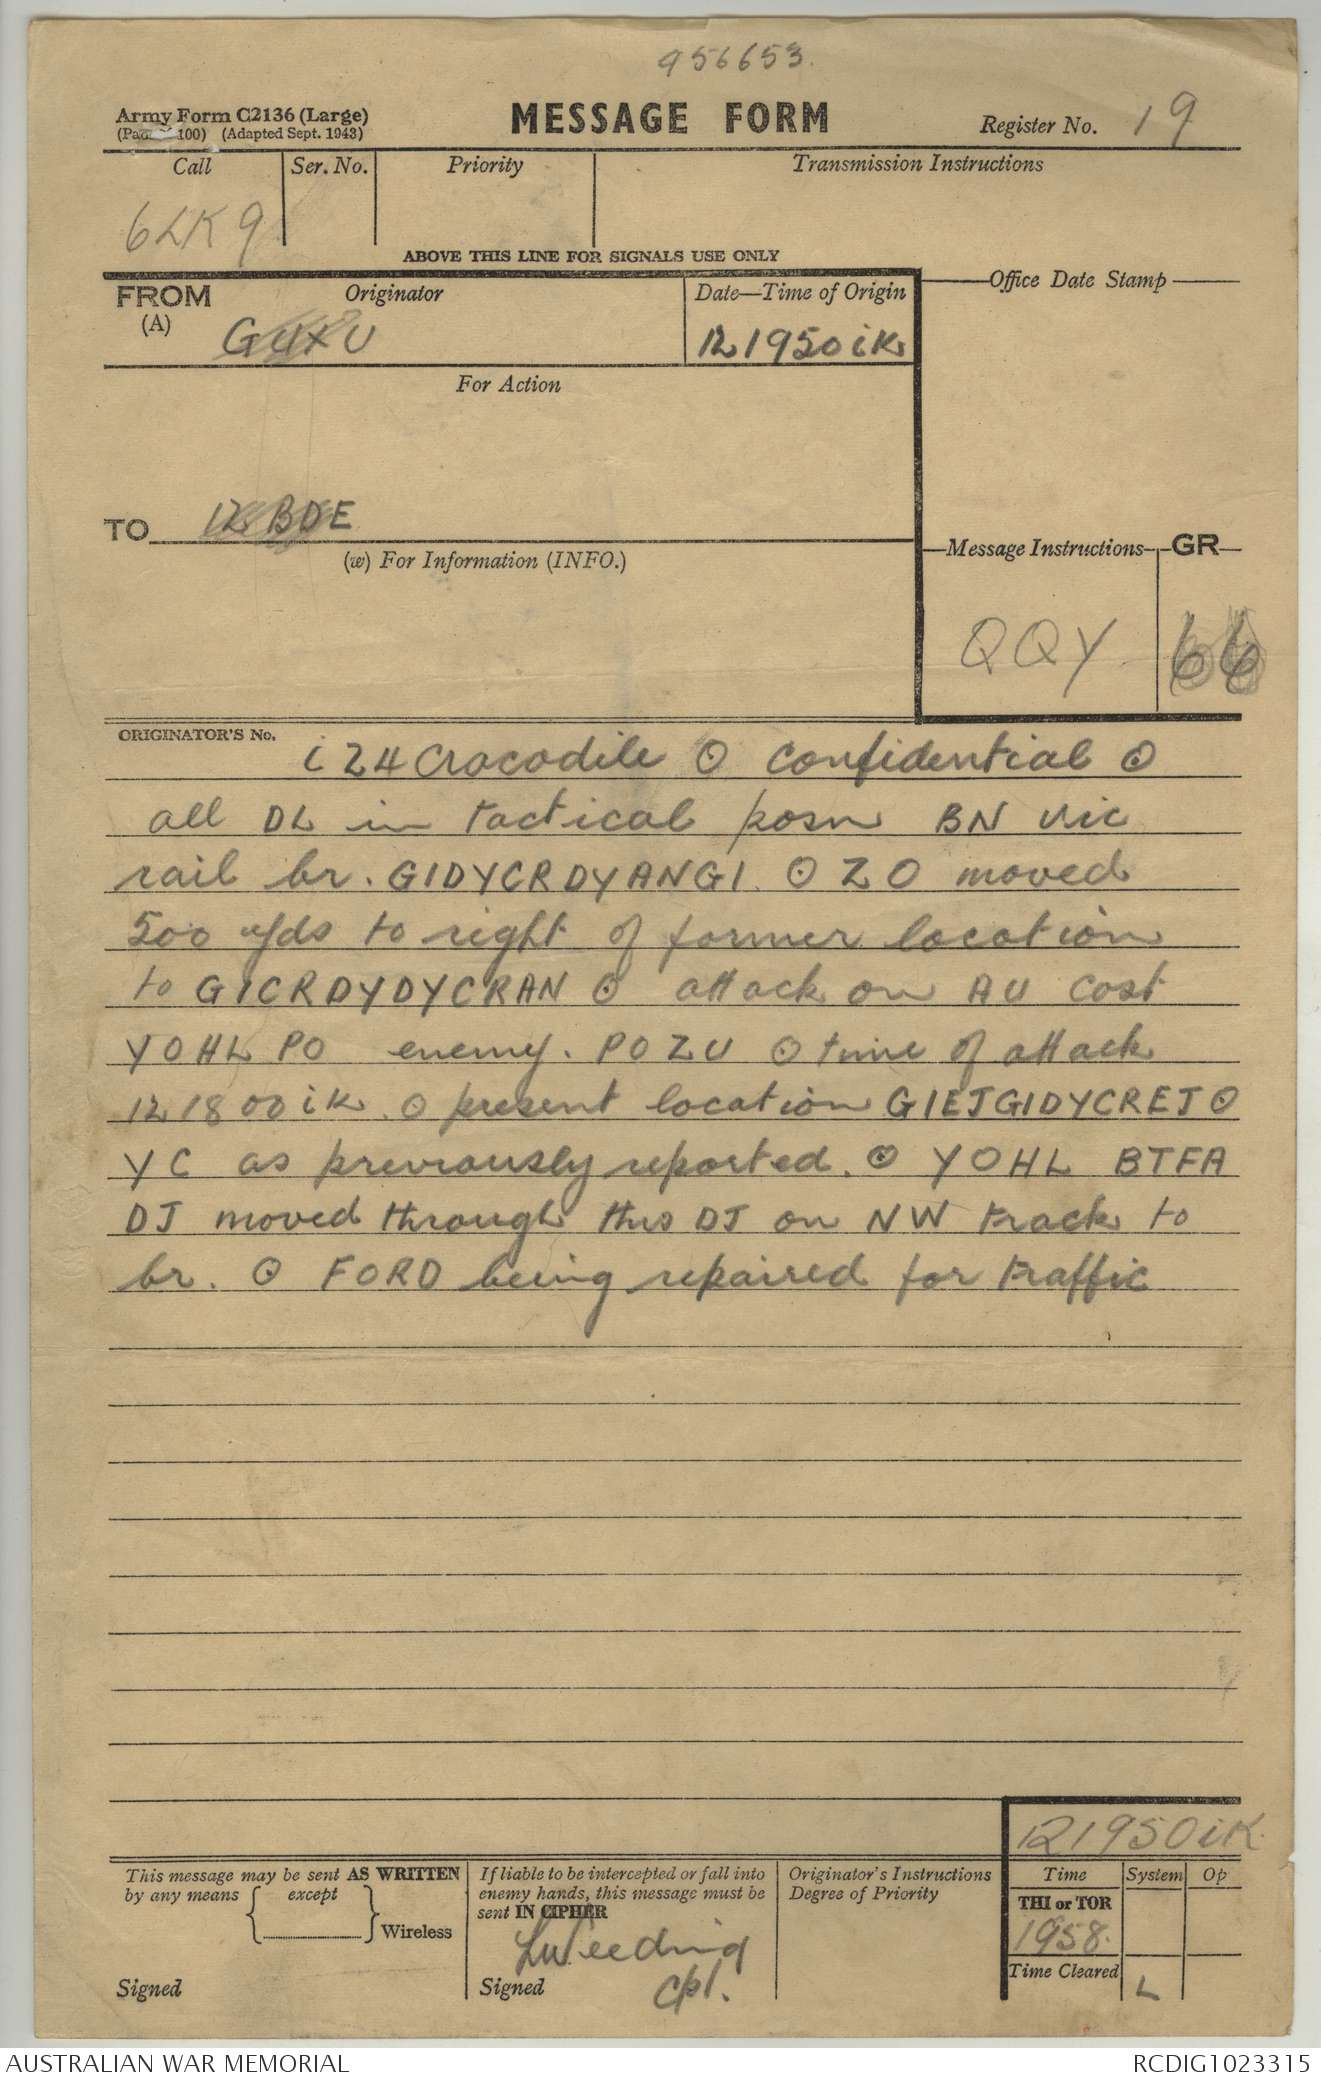 956653.
Army Form C2136 (Large)
100) (Adapted Sept. 1943)
MESSAGE FORM
Register No. 19
Call
Ser. No.
Priority
Transmission Instructions
6LK9
ABOVE THIS LINE FOR SIGNALS USE ONLY
FROM
(A)
Originator
Date—Time of Origin
Office Date Stamp
121950iK
For Action
TO 12 BDE
(w) For Information (INFO.)
Message Instructions
GR
QQY
66
ORIGINATOR'S No.
i24 Crocodile ⊙ Confidential ⊙
all DL in tactical posn BN vic
rail br. GIDYCRDYANGI. ⊙ ZO moved
500 yds to right of former location
to GICRDYDYCRAN ⊙ attack on AU cost
YOHL PO enemy. POZU ⊙ time of attack
121800iK ⊙ present location GIEJGIDYCREJ ⊙
YC as previously reported. ⊙ YOHL BTFA
DJ moved through this DJ on NW track to
br. ⊙ FORD being repaired for traffic
121950iK.
This message may be sent AS WRITTEN
by any means { except } Wireless
Signed
If liable to be intercepted or fall into
enemy hands, this message must be
sent IN CIPHER
LWeeding
Signed Cpl.
Originator's Instructions
Degree of Priority
Time
System
Op
THI or TOR
1958.
Time Cleared
L
AUSTRALIAN WAR MEMORIAL
RCDIG1023315